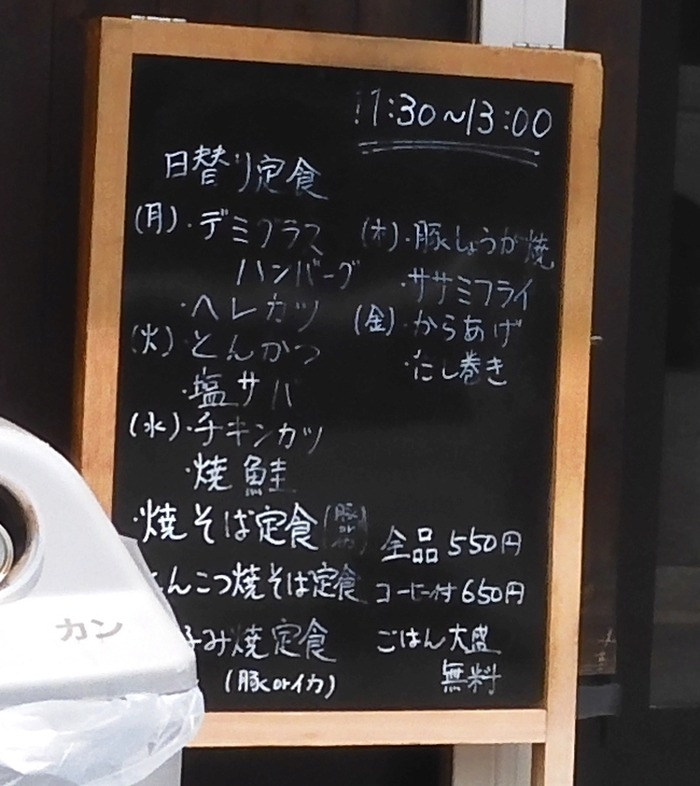 11:30～13:00
日替り定食
(月)・デミグラス
ハンバーグ
・ヘレカツ
(火)・とんかつ
・塩サバ
(水)・チキンカツ
・焼鮭
(木)・豚しょうが焼
・ササミフライ
(金)・からあげ
・だし巻き
・焼そば定食(豚orイカ)
とんこつ焼そば定食
み焼定食
(豚orイカ)
全品550円
コーヒー付650円
ごはん大盛
無料
カン